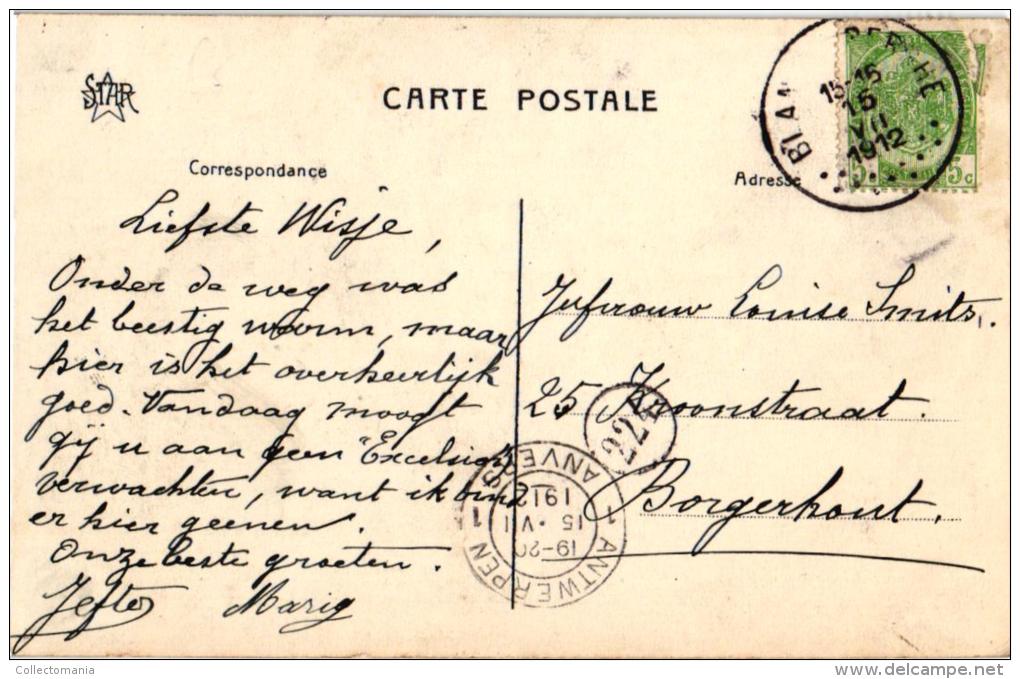 STAR
CARTE POSTALE
Correspondance
Adresse
15-16
15
VII
1912
5 5c
Liefste Wisje,
Onder de weg was
het beestig warm, maar
hier is het overheerlijk
goed. Vandaag moogt
gij u aan geen "Excelsior"
verwachten, want ik vind
er hier geenen.
Onze beste groeten.
Jufvrouw Louise Smits.
25 Kroonstraat.
Borgerhout.
1 ANTWERPEN 1 ANVERS
19-20
15 · VII
1912
Collectomania
www.delcampe.net